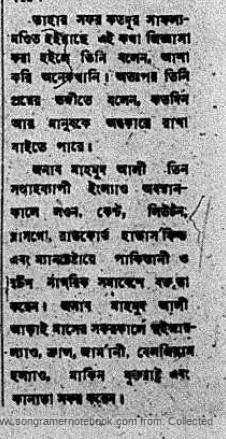 তাহার সফর কতদূর সাফল্য-
মণ্ডিত হইয়াছে এই কথা জিজ্ঞাসা
করা হইলে তিনি বলেন, আশা
করি অনেকখানি। অতঃপর তিনি
প্রশ্নের ভঙ্গীতে বলেন, কতদিন
আর মানুষকে অন্ধকারে রাখা
যাইতে পারে।
জনাব মাহমুদ আলী তিন
সপ্তাহব্যাপী ইংল্যাণ্ড অবস্থান-
কালে লণ্ডন, কেন্ট, লিউটন,
গ্লাসগো, ব্রাডফোর্ড
এবং ম্যানচেষ্টারে পাকিস্তানী ও
বৃটিশ নাগরিক সমাবেশে বক্তৃতা
করেন। জনাব মাহমুদ আলী
আড়াই মাসের সফরকালে সুইজার-
ল্যাণ্ড, ফ্রান্স, জার্মানী, বেলজিয়াম
হল্যাণ্ড, মার্কিন যুক্তরাষ্ট্র এবং
কানাডা সফর করেন।
www.songramernotebook.com from: Collected